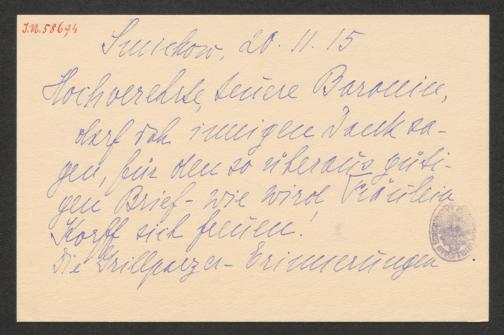 I.N. 58694
Smichow, 20. 11. 15
Hochverehrte, teuere Baronin,
darf ich innigen Dank sa-
gen, für den so überaus güti-
gen Brief - wie wird Fräulein
Korff sich freuen!
Die Grillparzer-Erinnerungen